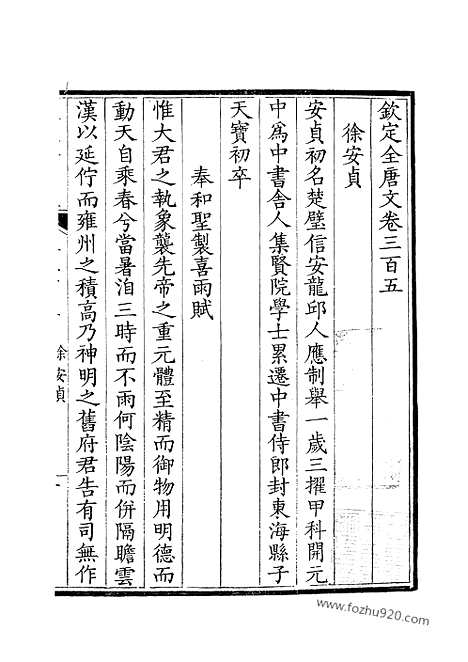 欽定全唐文卷三百五
徐安貞
安貞初名楚璧信安龍邱人應制舉一歲三擢甲科開元
中爲中書舍人集賢院學士累遷中書侍郎封東海縣子
天寶初卒
奉和聖製喜雨賦
惟大君之執象襲先帝之重元體至精而御物用明德而
動天自乘春兮當暑洎三時而不雨何陰陽而併隔瞻雲
漢以延佇而雍州之積高乃神明之舊府君告有司無作
徐安貞
一
www.fozhu920.com